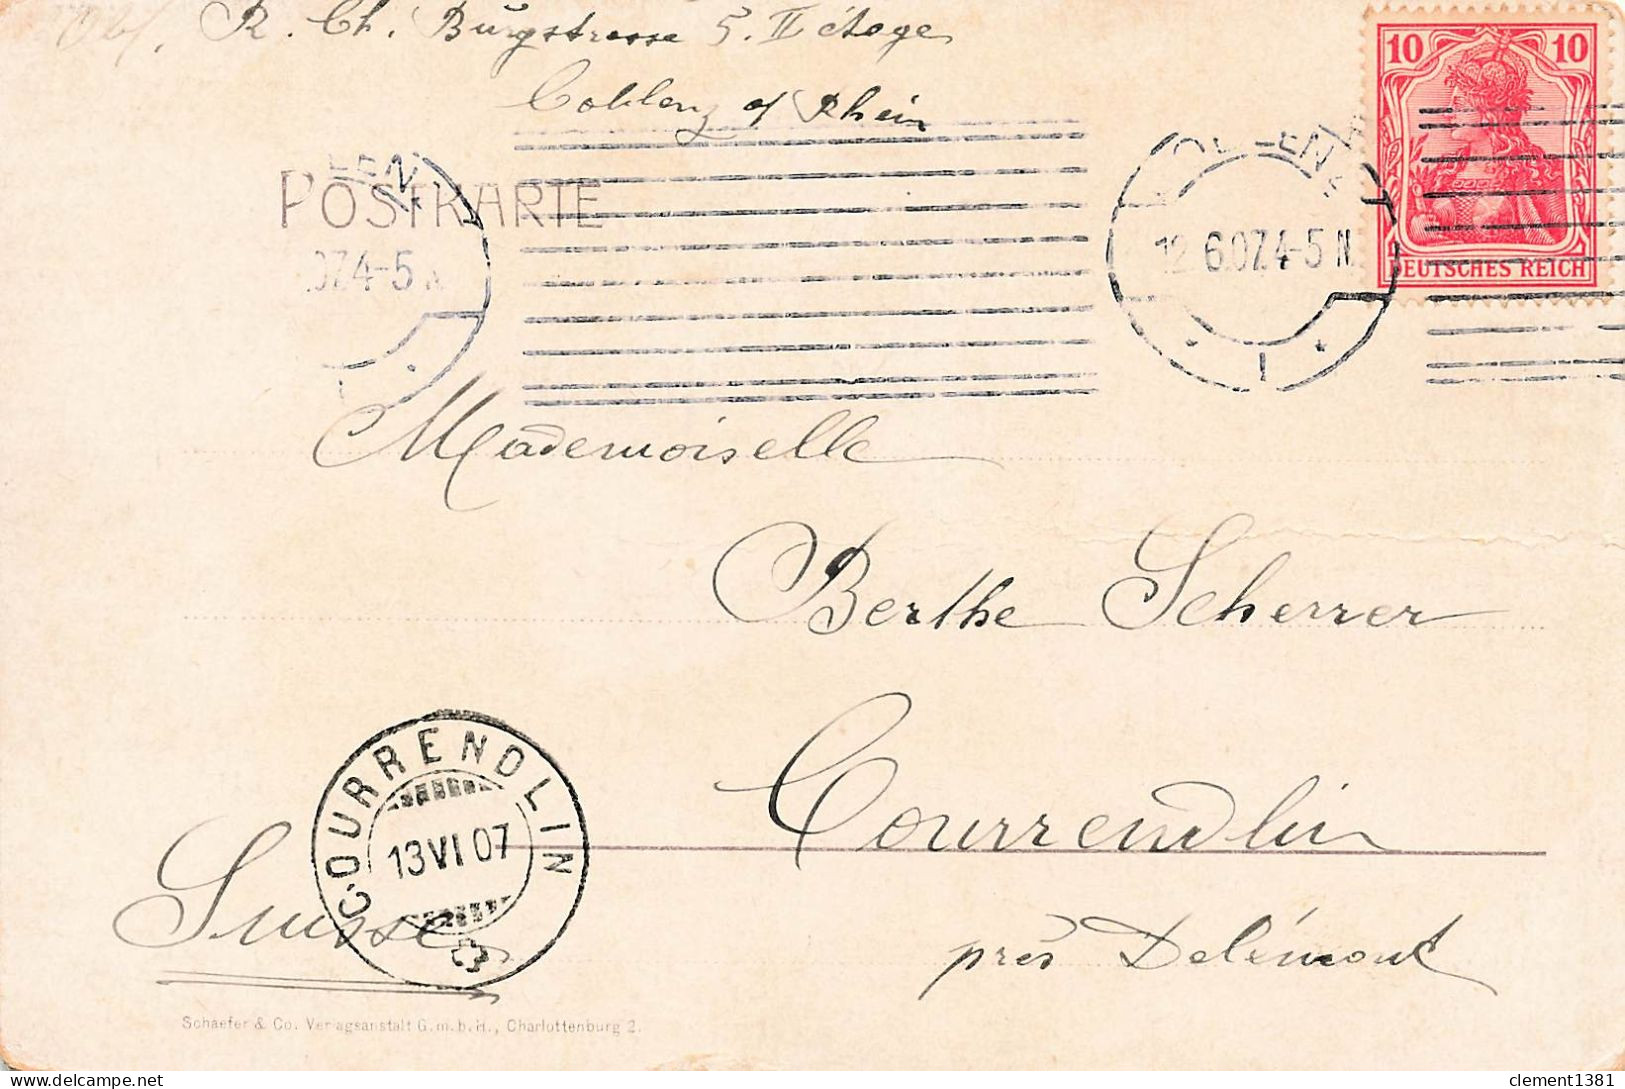 R. Ch. Burgstrasse 5. II étage
Coblenz a/ Rhein
10 10
DEUTSCHES REICH
POSTKARTE
12.6.07.4-5 N
1
Mademoiselle
Berthe Scherrer
Courrendlin
COURRENDLIN
13 VI 07
Suisse
près Delémont
Schaefer & Co. Verlagsanstalt G.m.b.H., Charlottenburg 2.
clement1381